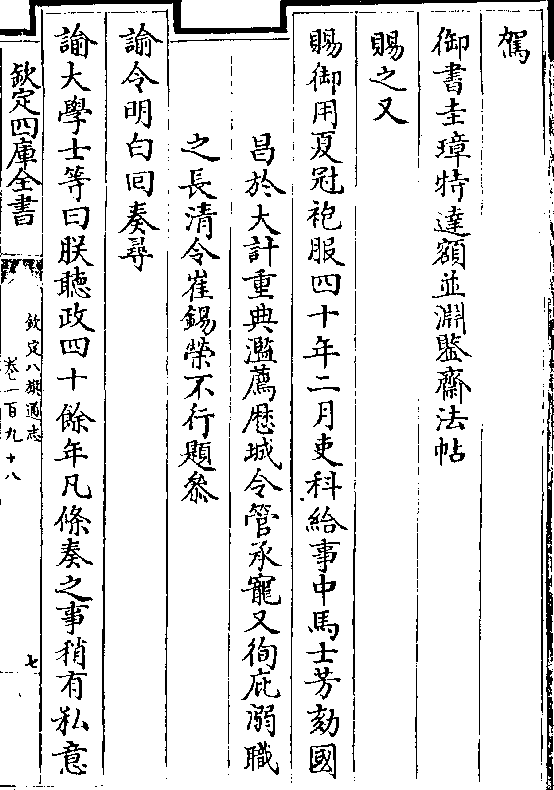 駕
御書圭璋特達額並淵鑒齋法帖
賜之又
賜御用夏冠袍服四十年二月吏科給事中馬士芳劾國
昌於大計重典濫薦歴城令管承寵又徇庇溺職
之長清令崔錫榮不行題叅
諭令明白回奏尋
諭大學士等曰朕聽政四十餘年凡條奏之事稍有私意
欽定四庫全書
欽定八旗通志
卷二百九十八
七